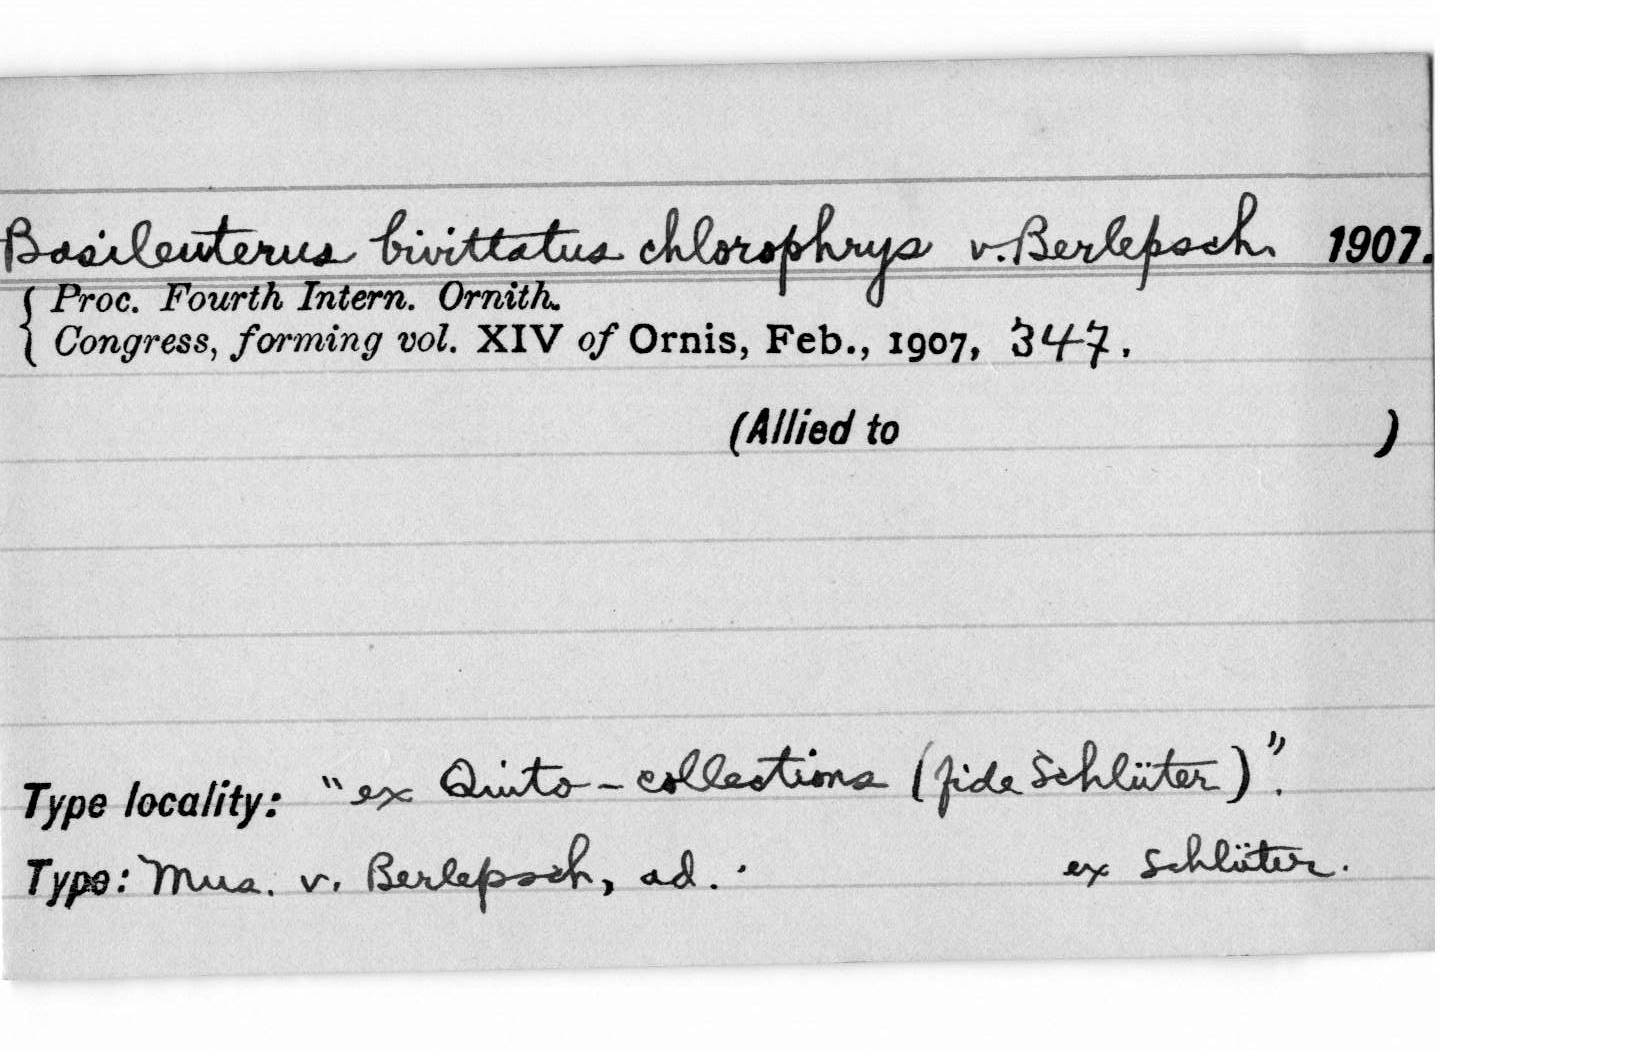 Basileuterus bivittatus chlorophrys v. Berlepsch. 1907.
{ Proc. Fourth Intern. Ornith.
Congress, forming vol. XIV of Ornis, Feb., 1907, 347.
(Allied to )
Type locality: "ex Quito-collections (fide Schlüter)".
Type: Mus. v. Berlepsch, ad. ex Schlüter.